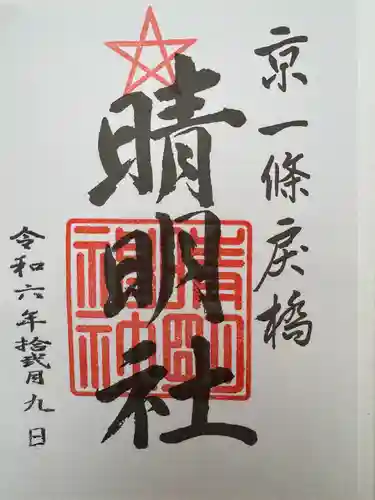 京一條戻橋
晴明社
晴明
神社
令和六年拾弐月九日